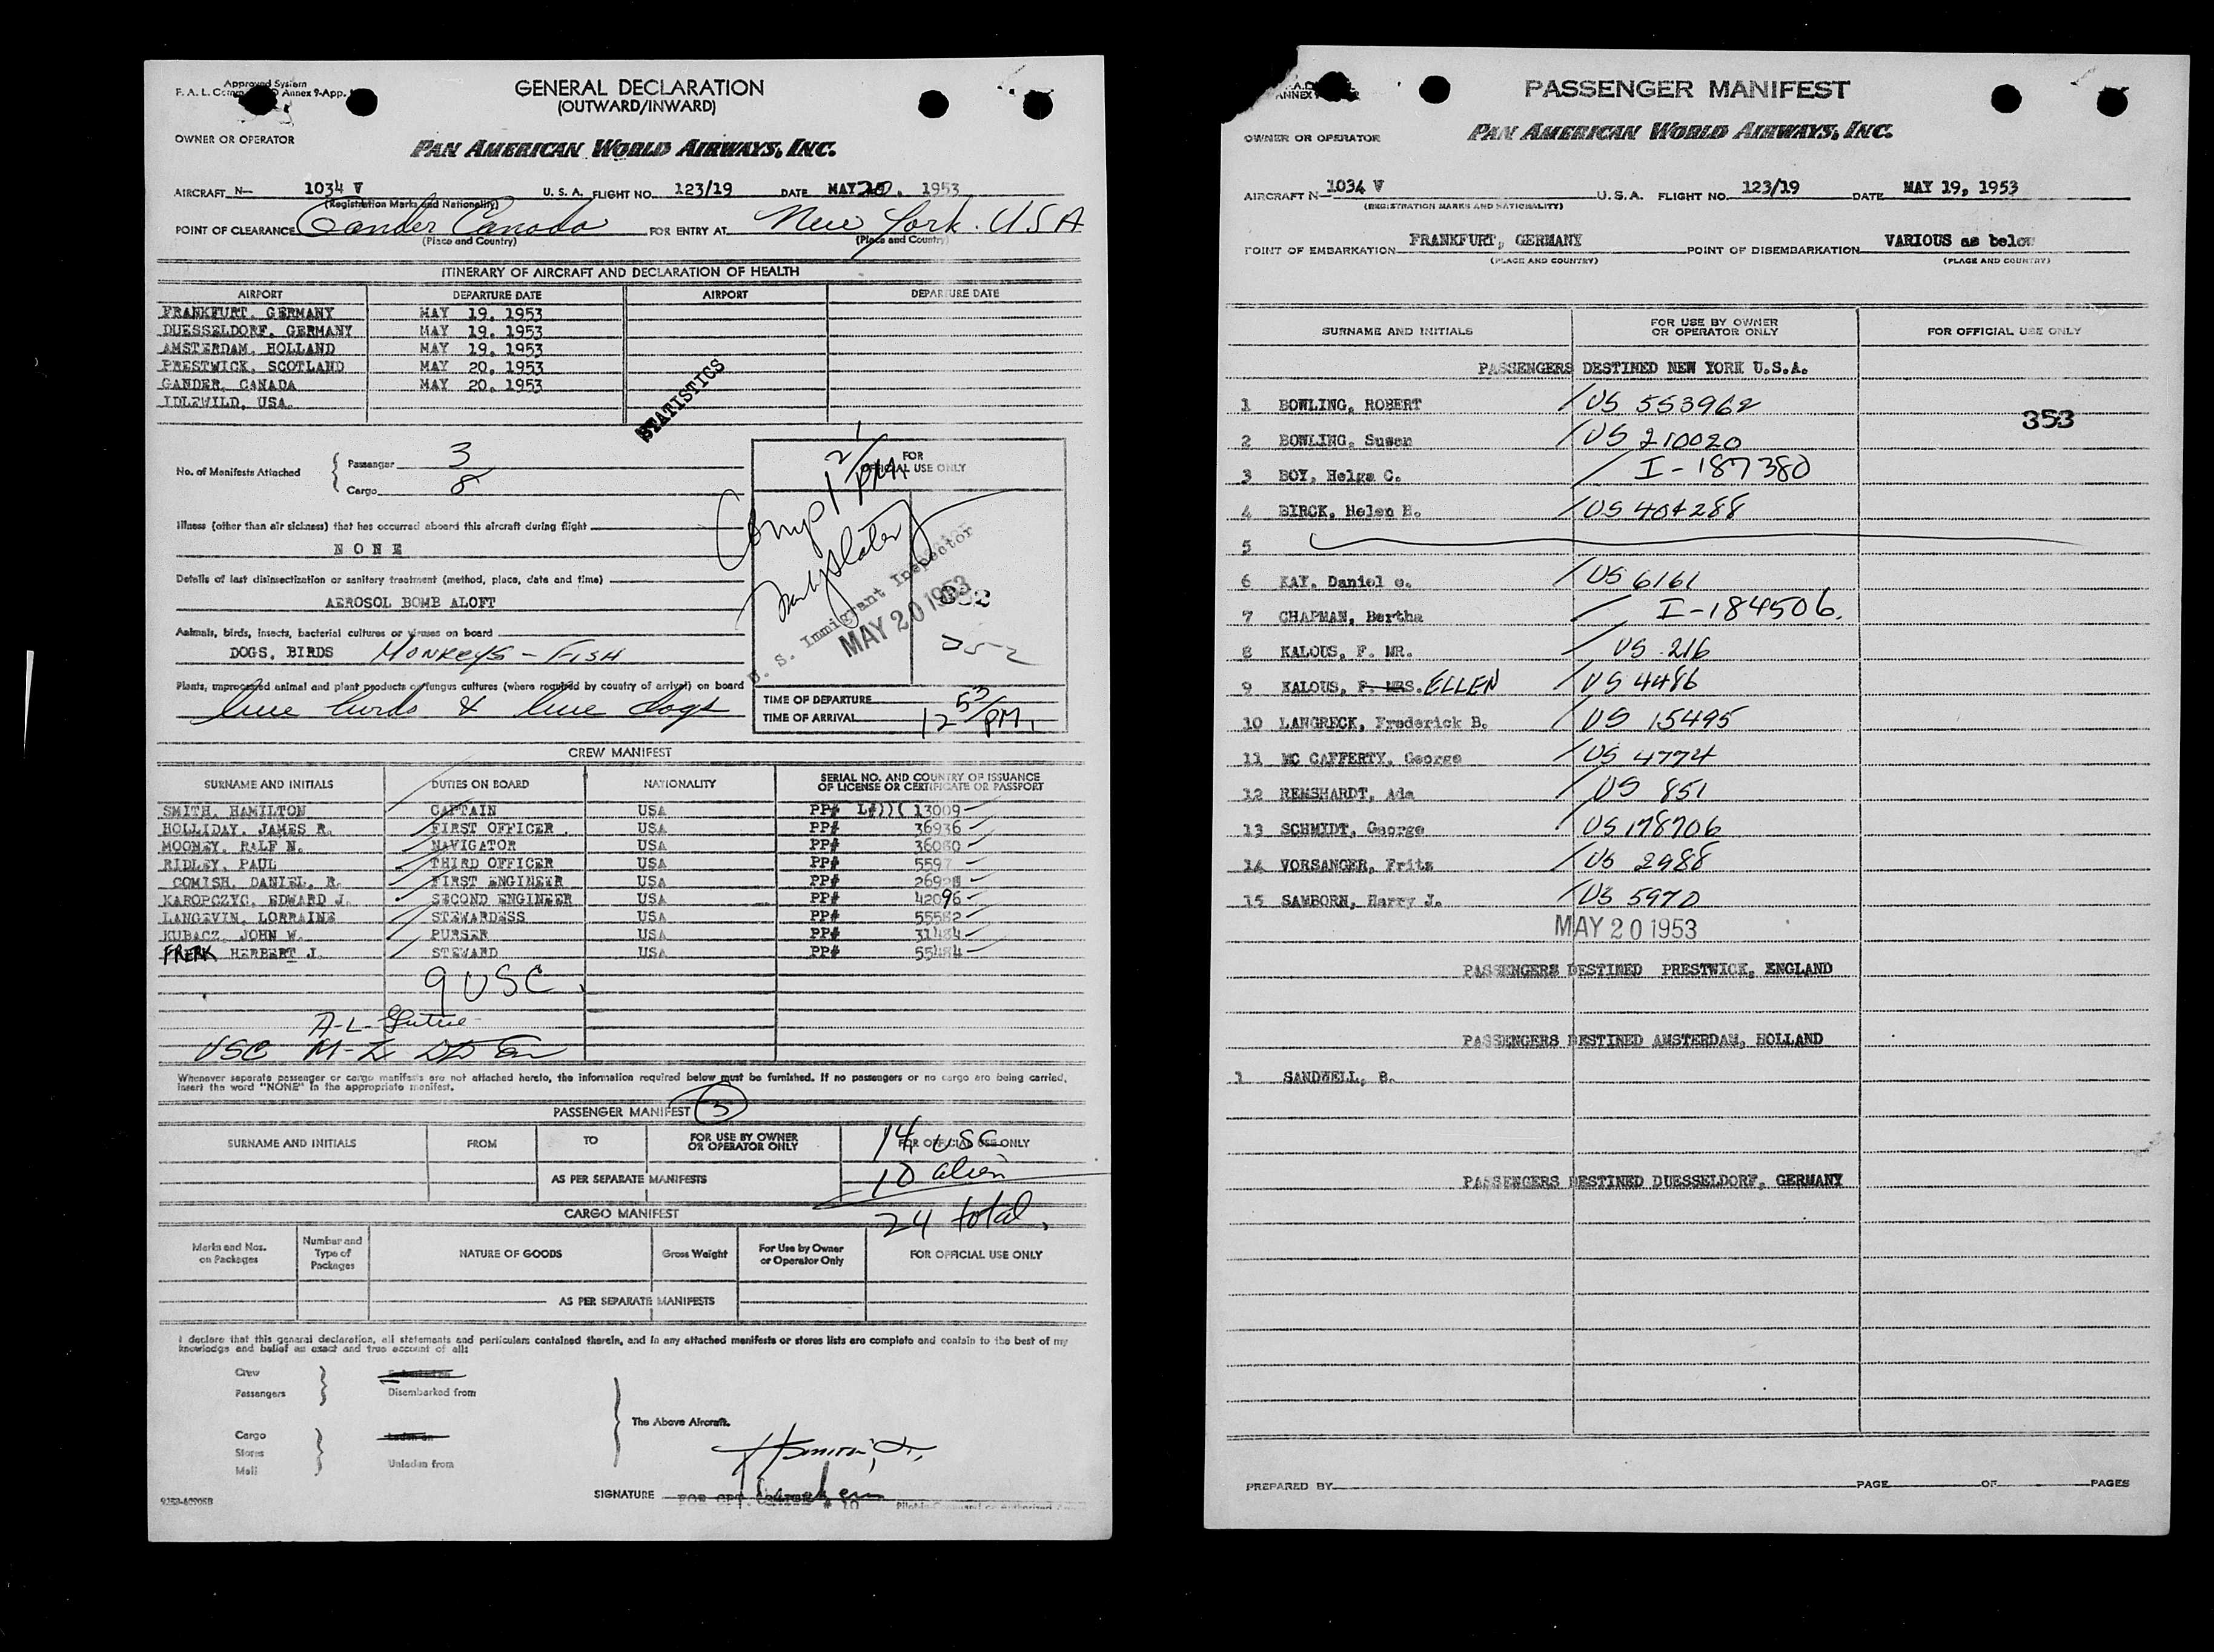 Approved System
F. A. L. Comm Annex 9-App.
GENERAL DECLARATION
(OUTWARD/INWARD)
OWNER OR OPERATOR
PAN AMERICAN WORLD AIRWAYS, INC.
AIRCRAFT N— 1034 V U. S. A. FLIGHT NO. 123/19 DATE MAY 20, 1953
(Registration Marks and Nationality)
POINT OF CLEARANCE Gander Canada FOR ENTRY AT New York. USA
(Place and Country) (Place and Country)
ITINERARY OF AIRCRAFT AND DECLARATION OF HEALTH
AIRPORT DEPARTURE DATE AIRPORT DEPARTURE DATE
FRANKFURT, GERMANY MAY 19, 1953
DUESSELDORF, GERMANY MAY 19, 1953
AMSTERDAM, HOLLAND MAY 19, 1953
PRESTWICK, SCOTLAND MAY 20, 1953
GANDER, CANADA MAY 20, 1953
IDLEWILD, USA.
STATISTICS
No. of Manifests Attached
Passenger 3
Cargo 8
FOR
OFFICIAL USE ONLY
Compl 1 PM
U. S. Immigrant Inspector
MAY 20 1953
352
Illness (other than air sickness) that has occurred aboard this aircraft during flight
NONE
Details of last disinsectization or sanitary treatment (method, place, date and time)
AEROSOL BOMB ALOFT
Animals, birds, insects, bacterial cultures or viruses on board
DOGS, BIRDS MONKEYS - FISH
Plants, unprocessed animal and plant products or fungus cultures (where required by country of arrival) on board
live birds & live dogs
TIME OF DEPARTURE
TIME OF ARRIVAL 12 53/PM.
CREW MANIFEST
SURNAME AND INITIALS DUTIES ON BOARD NATIONALITY SERIAL NO. AND COUNTRY OF ISSUANCE OF LICENSE OR CERTIFICATE OR PASSPORT
SMITH, HAMILTON CAPTAIN USA PP# L#))( 13009
HOLLIDAY, JAMES R. FIRST OFFICER USA PP# 36936
MOONEY, RALF N. NAVIGATOR USA PP# 36080
RIDLEY, PAUL THIRD OFFICER USA PP# 5597
COMISH, DANIEL, R. FIRST ENGINEER USA PP#
KAROPCZYC, EDWARD J. SECOND ENGINEER USA PP# 42096
LANGEVIN, LORRAINE STEWARDESS USA PP# 55582
KUBACZ, JOHN W. PURSER USA PP# 31484
FRERK HERBERT J. STEWARD USA PP# 55484
9 USC.
A-L-
USC M-L
Whenever separate passenger or cargo manifests are not attached hereto, the information required below must be furnished. If no passengers or no cargo are being carried,
insert the word "NONE" in the appropriate manifest.
PASSENGER MANIFEST 3
SURNAME AND INITIALS FROM TO FOR USE BY OWNER OR OPERATOR ONLY FOR OFFICIAL USE ONLY
14 USC
AS PER SEPARATE MANIFESTS 10 alien
24 total.
CARGO MANIFEST
Marks and Nos. on Packages Number and Type of Packages NATURE OF GOODS Gross Weight For Use by Owner or Operator Only FOR OFFICIAL USE ONLY
AS PER SEPARATE MANIFESTS
I declare that this general declaration, all statements and particulars contained therein, and in any attached manifests or stores lists are complete and contain to the best of my
knowledge and belief an exact and true account of all:
Crew
Passengers Disembarked from
The Above Aircraft.
Cargo
Stores
Mail Unladen from
SIGNATURE
PASSENGER MANIFEST
OWNER OR OPERATOR
PAN AMERICAN WORLD AIRWAYS, INC.
AIRCRAFT N— 1034 V U. S. A. FLIGHT NO. 123/19 DATE MAY 19, 1953
(REGISTRATION MARKS AND NATIONALITY)
POINT OF EMBARKATION FRANKFURT, GERMANY POINT OF DISEMBARKATION VARIOUS as below
(PLACE AND COUNTRY) (PLACE AND COUNTRY)
SURNAME AND INITIALS FOR USE BY OWNER OR OPERATOR ONLY FOR OFFICIAL USE ONLY
PASSENGERS DESTINED NEW YORK U.S.A.
1 BOWLING, ROBERT US 553962
353
2 BOWLING, Susan US 210020
3 BOY, Helga C. I-187380
4 BIRCK, Helen H. US 404288
5
6 KAY, Daniel e. US 6161
7 CHAPMAN, Bertha I-184506.
8 KALOUS, F. MR. US 216
9 KALOUS, F. MRS. ELLEN US 4486
10 LANGRECK, Frederick B. US 15495
11 MC CAFFERTY, George US 4774
12 REMSHARDT, Ada US 851
13 SCHMIDT, George US 178706
14 VORSANGER, Fritz US 2988
15 SAMBORN, Harry J. US 5970
MAY 20 1953
PASSENGERS DESTINED PRESTWICK, ENGLAND
PASSENGERS DESTINED AMSTERDAM, HOLLAND
1 SANDWELL, B.
PASSENGERS DESTINED DUESSELDORF, GERMANY
PREPARED BY PAGE OF PAGES